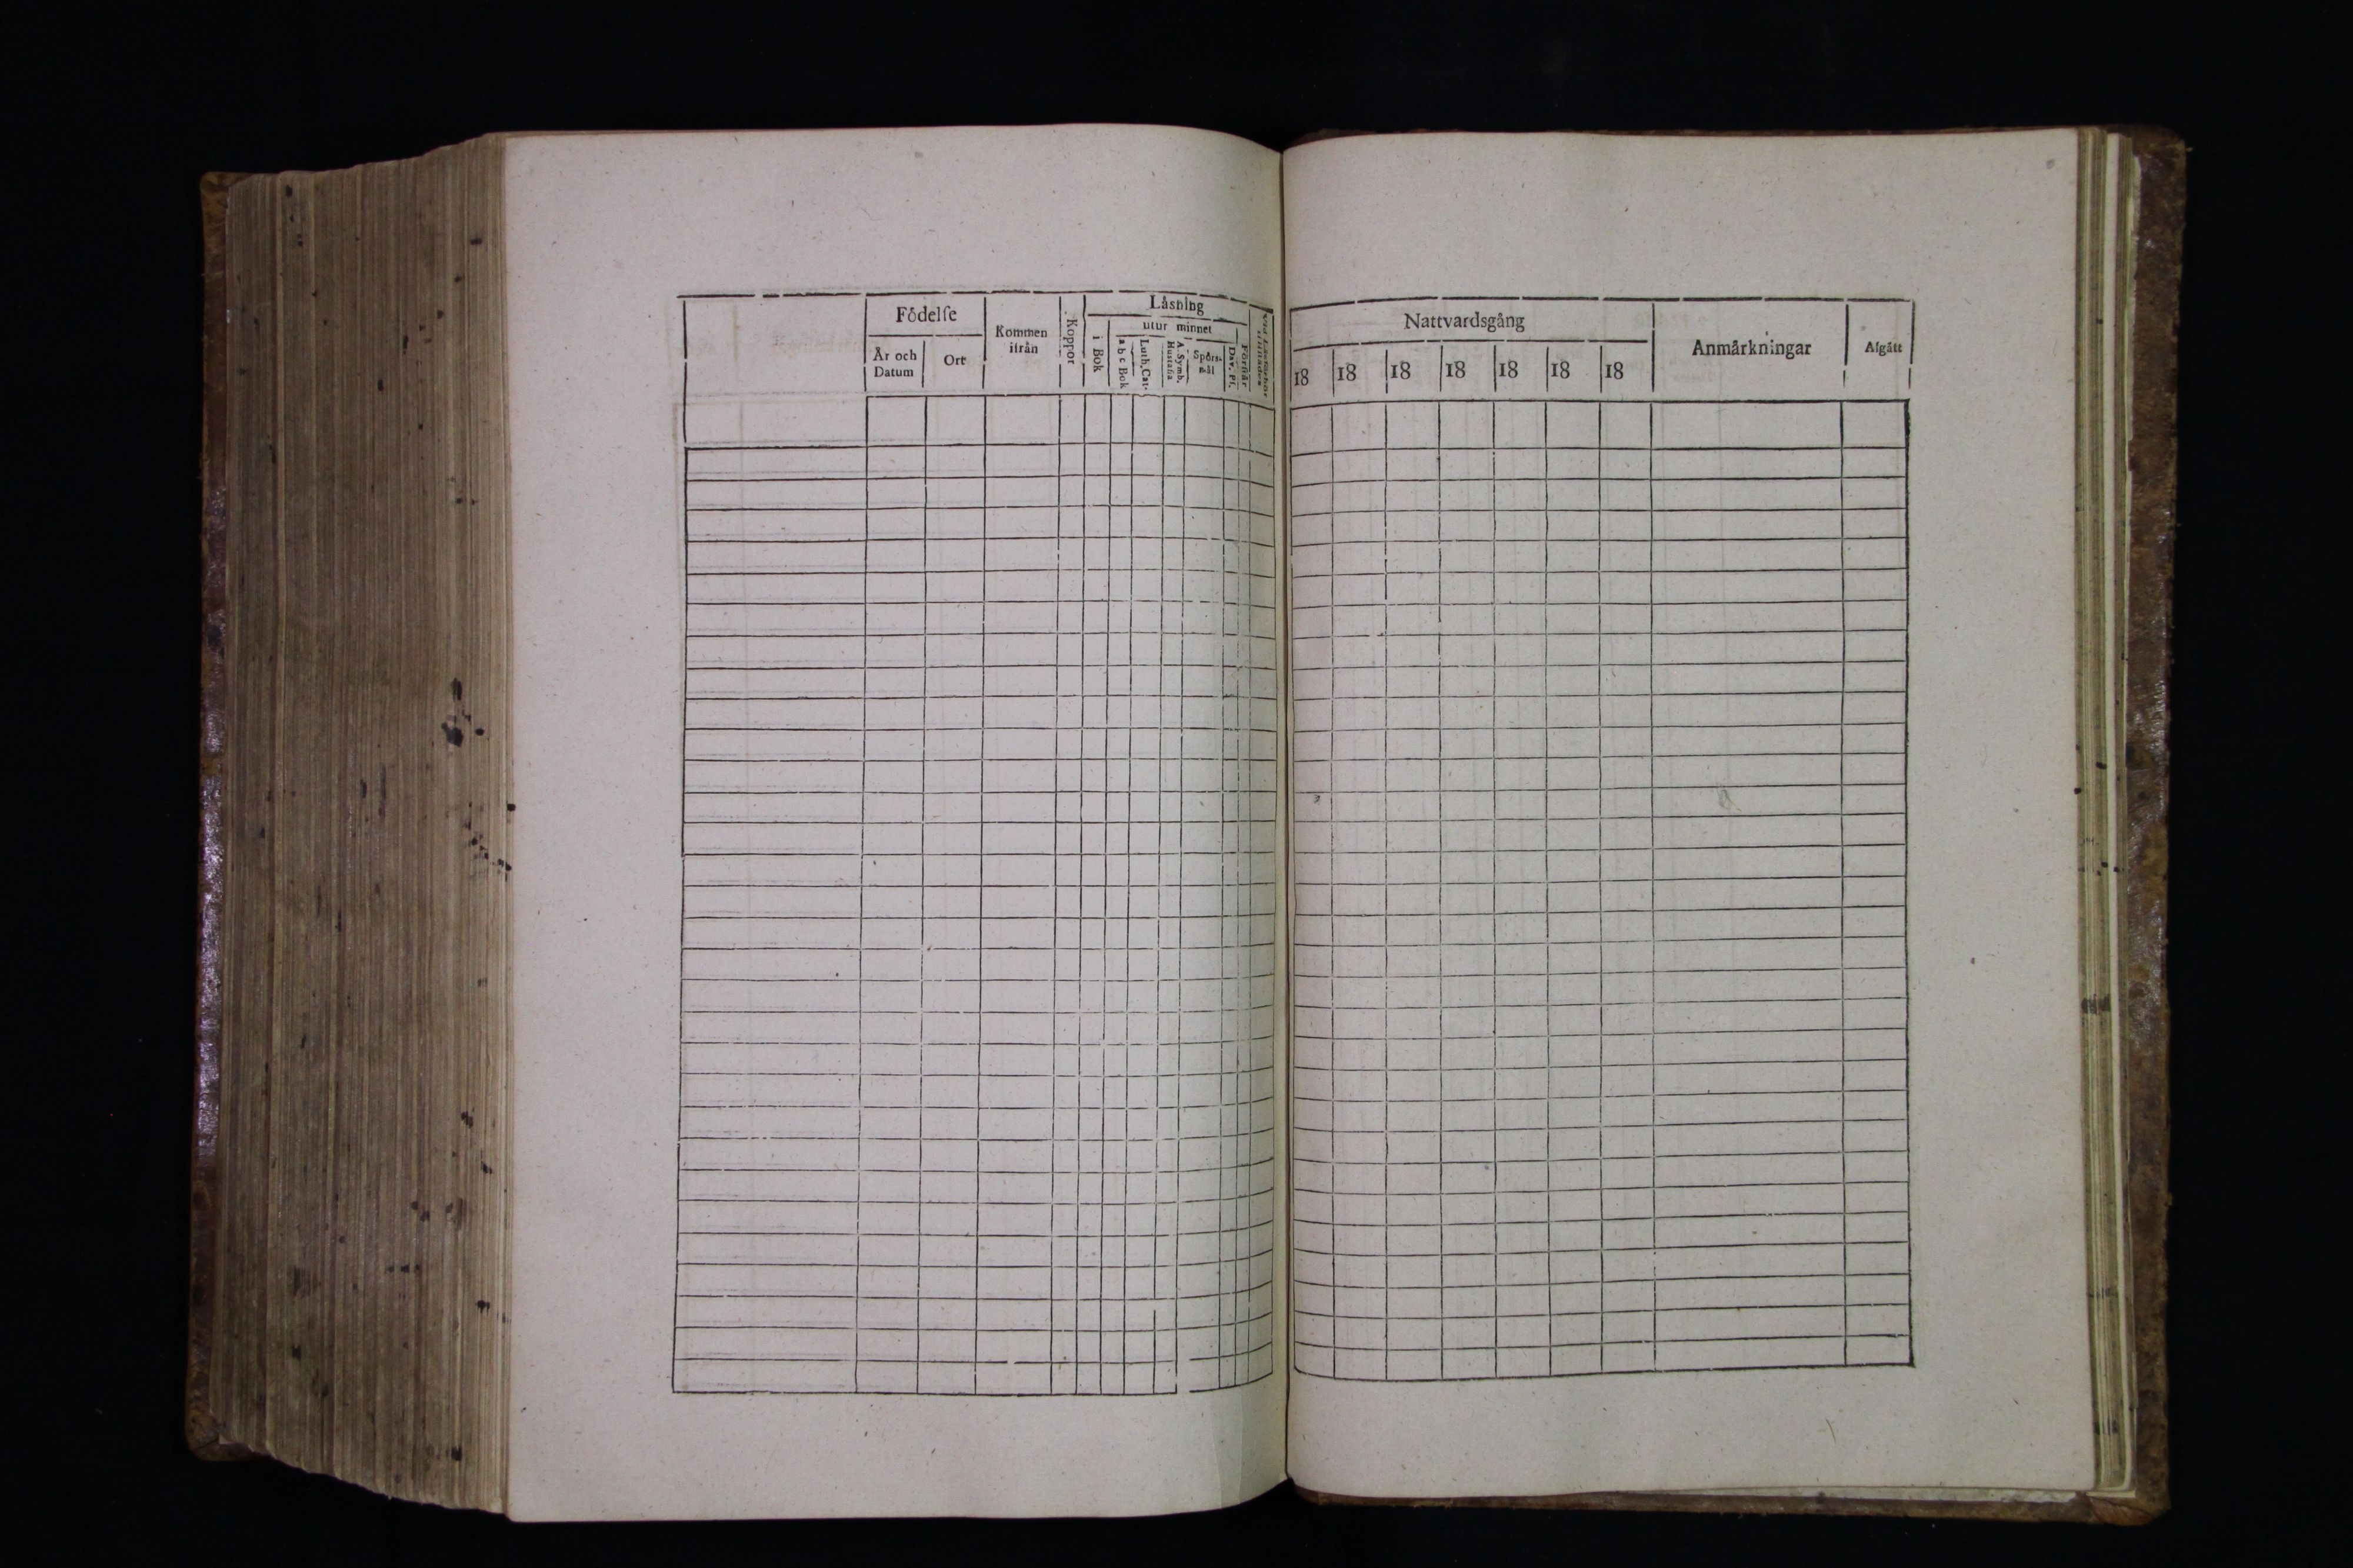 Fôdelſe
År och
Datum
Ort
Kommen
ifrån
Koppor
Låsning
i Bok
utur minnet
a b c Bok
Luth. Cat.
A. Symb.
Hustafla
Spörs-
mål
Dav. Pſ.
Förſtår
Nattvardsgång
18 18 18 18 18 18 18
Anmårkningar
Afgått